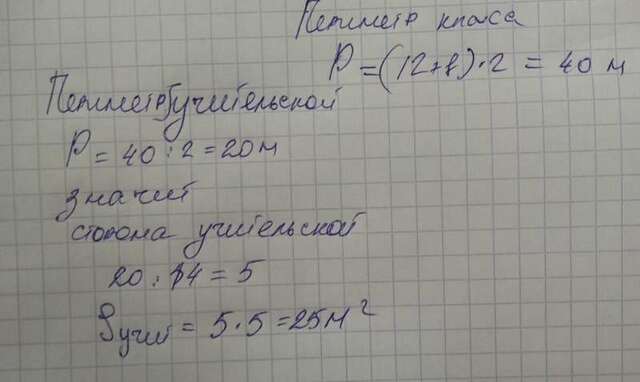 Периметр класса
P = (12+8)·2 = 40 м
Периметр учительской
P = 40 : 2 = 20 м
значит
сторона учительской
20 : 4 = 5
Sучит = 5·5 = 25 м²